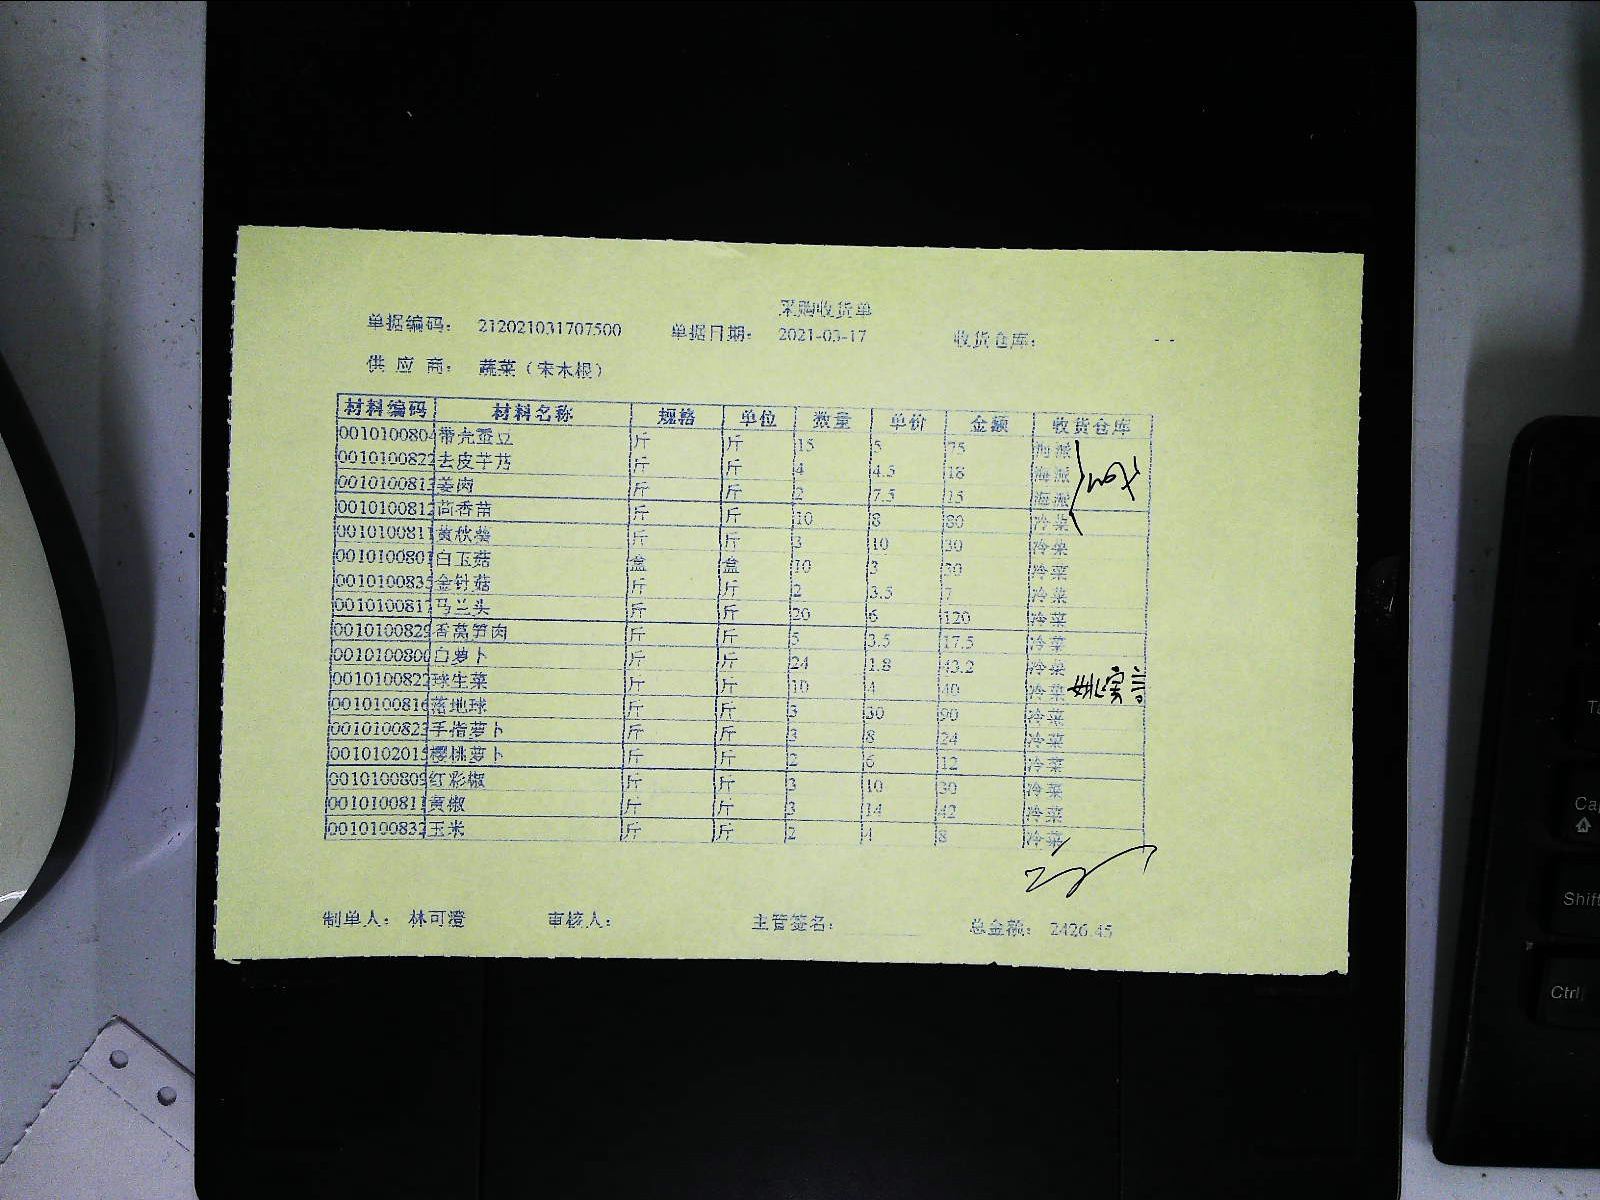 采购收货单
单据编码： 212021031707500 单据日期： 2021-03-17 收货仓库： - -
供 应 商： 蔬菜（宋木根）
材料编码 材料名称 规格 单位 数量 单价 金额 收货仓库
0010100804 带壳蚕豆 斤 斤 15 5 75 海派
0010100822 去皮芋艿 斤 斤 4 4.5 18 海派
001010081 姜肉 斤 斤 2 7.5 15 海派
0010100812 茴香苗 斤 斤 10 8 80 冷菜
001010081 黄秋葵 斤 斤 3 10 30 冷菜
001010080 白玉菇 盒 盒 10 3 30 冷菜
0010100835 金针菇 斤 斤 2 3.5 7 冷菜
0010100817 马兰头 斤 斤 20 6 120 冷菜
0010100829 香莴笋肉 斤 斤 5 3.5 17.5 冷菜
0010100800 白萝卜 斤 斤 24 1.8 43.2 冷菜
0010100822 球生菜 斤 斤 10 4 40 冷菜
0010100816 落地球 斤 斤 3 30 90 冷菜
0010100823 手指萝卜 斤 斤 3 8 24 冷菜
0010102015 樱桃萝卜 斤 斤 2 6 12 冷菜
0010100809 红彩椒 斤 斤 3 10 30 冷菜
001010081 黄椒 斤 斤 3 14 42 冷菜
0010100832 玉米 斤 斤 2 4 8 冷菜
制单人： 林可澄 审核人： 主管签名： 总金额： 2426.45
Shift
Ctrl